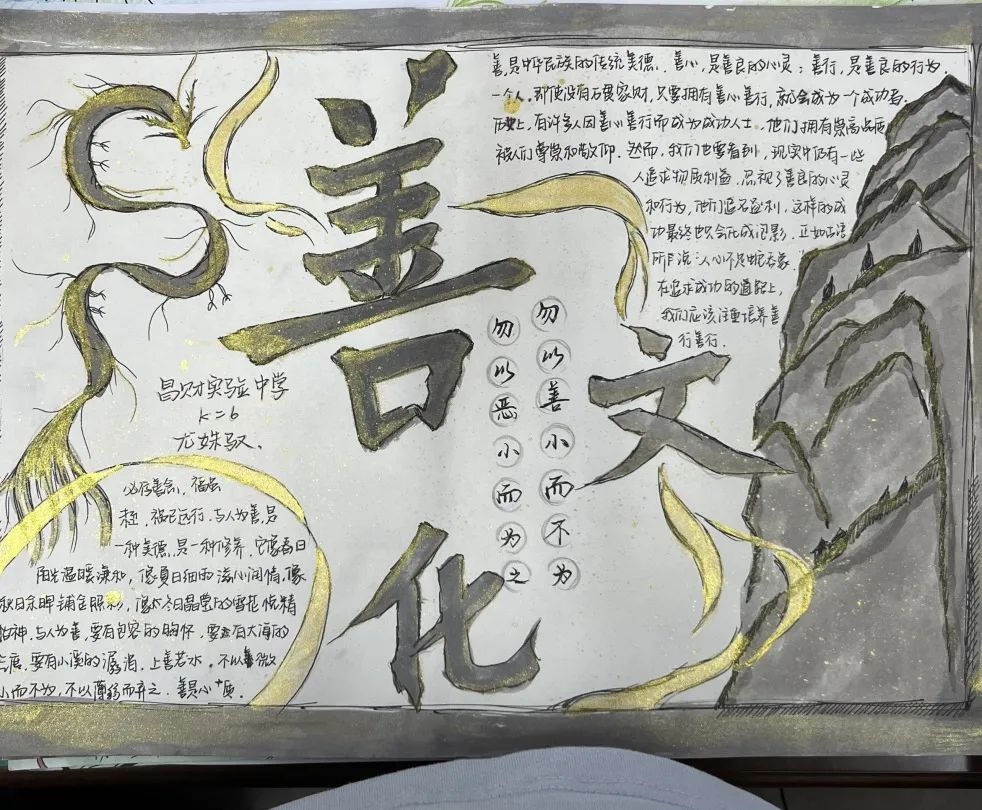 善文化
善,是中华民族的传统美德.善心,是善良的心灵;善行,是善良的行为,
一个人,即使没有石贯家财,只要拥有善心善行,就会成为一个成功者.
历史上,有许多人因善心善行而成为成功人士,他们拥有崇高品质
被人们尊崇和敬仰.然而,我们也要看到,现实中仍有一些
人追求物质利益,忽视了善良的心灵
和行为,他们追名逐利,这样的成
功最终也只会化成泡影.正如古语
所说:人心不足蛇吞象
在追求成功的道路上,
我们应该注重培养善
行善行.
勿以恶小而为之
勿以善小而不为
昌财实验中学
K=6
尤姝驭.
心存善念,福虽
未至,祸已远行.与人为善,是
一种美德,是一种修养.它像春日
阳光温暖漾和,像夏日细雨滋心润情,像
秋日余晖铺金照彩,像冬日晶莹的雪花悦精
怡神.与人为善,要有包容的胸怀,要有大海的
度,要有小溪的潺涓.上善若水.不以善微
小而不为,不以薄弱而弃之.善是心